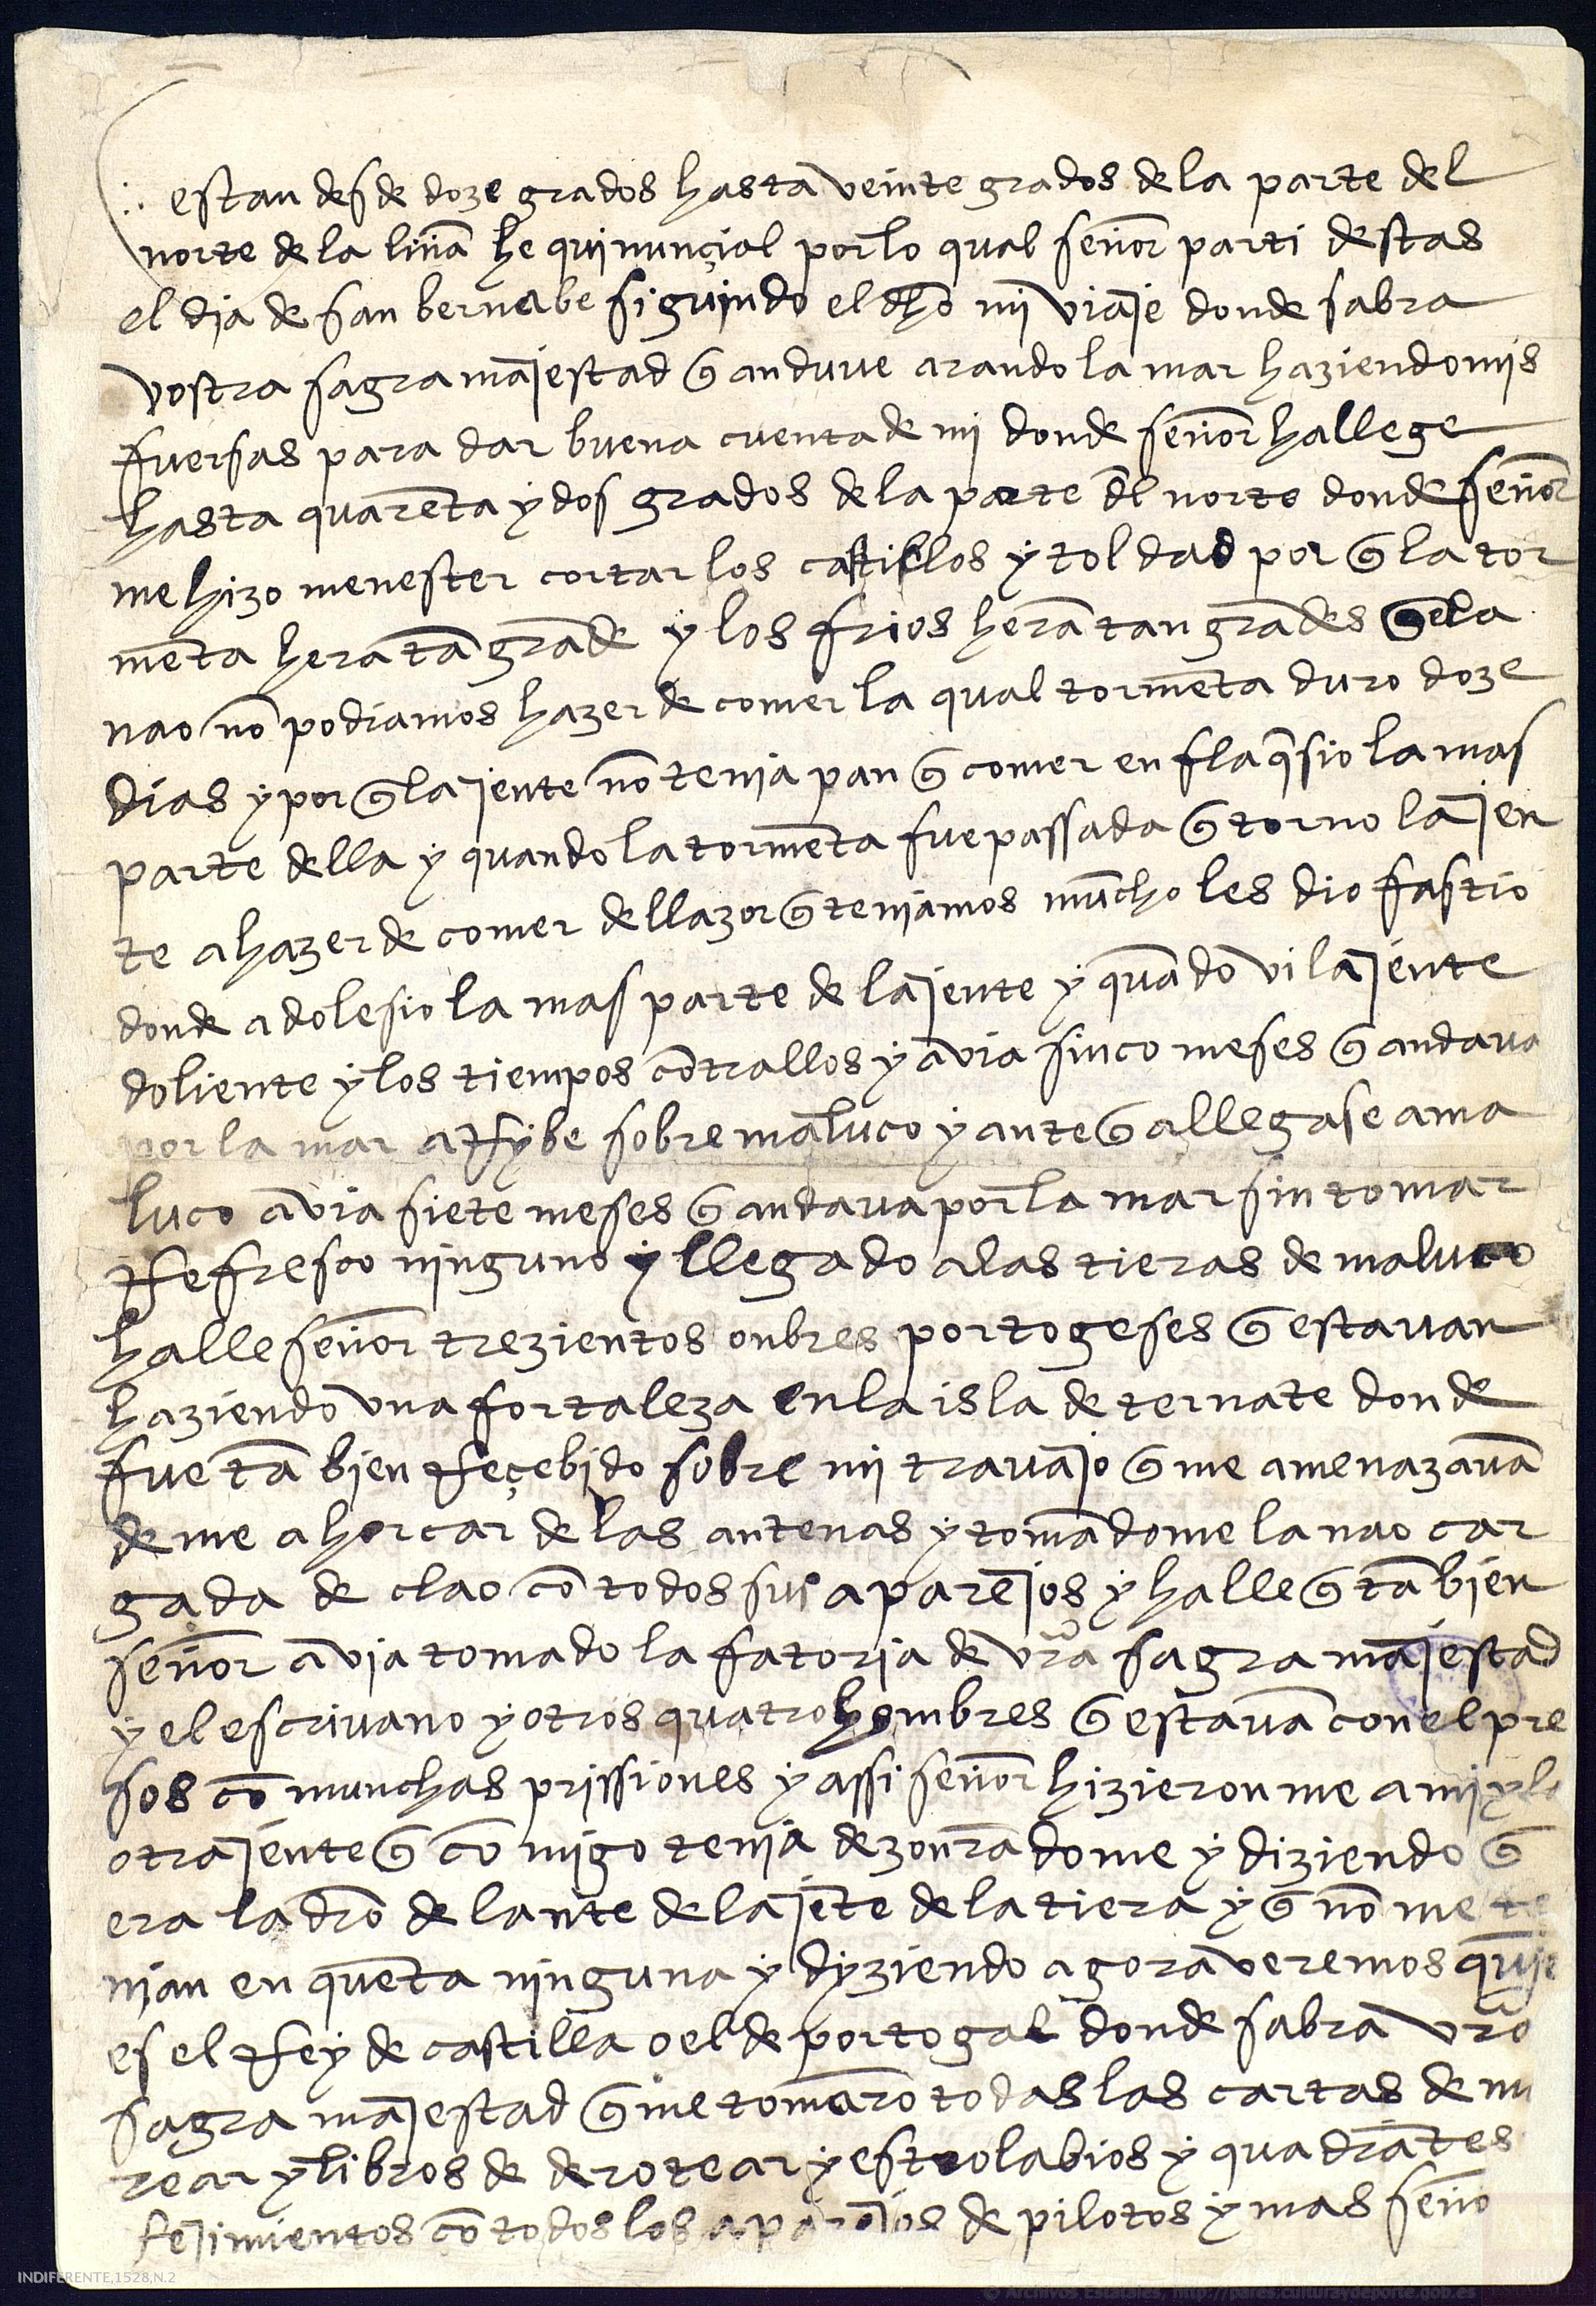 estan desde doze grados hasta veinte grados de la parte del
norte de la liña he quinunçial por lo qual señor parti destas
el dja de san bernabe siguindo el dho mj viaje donde sabra
vostra sagra majestad q̃ anduve arando la mar haziendo mjs
fuersas para dar buena cuenta de mj donde señor hallege
hasta quarēta y dos grados de la parte dl norte donde señor
me hizo menester cortar los castillos y toldad por q̃ la tor
mēta hera tā grāde y los frios herā tan grādes q̃ ē la
nao nō podiamos hazer de comer la qual tormēta duro doze
dias y por q̃ la jente nō tenja pan q̃ comer enflaq̃sio la mas
parte della y quando la tormēta fue passada q̃ torno la jen
te a hazer de comer dell azor q̃ tenjamos mūcho les dio fastio
donde adolesio la mas parte de la jente y quādo vi la jente
doliente y los tiempos cōtrallos y avia sinco meses q̃ andava
por la mar aRybe sobre maluco y ante q̃ allegase a ma
luco avia siete meses q̃ andava por la mar sin tomar
Refresco njnguno y llegado a las tieras de maluco
halle señor trezientos onbres portogeses q̃ estavan
haziendo vna fortaleza en la isla de ternate donde
fue tā bien Reçebjdo sobre mj travajo q̃ me amenazavā
de me ahorcar de las antenas y tomādome la nao car
gada de clao cō todos sus aparejos y halle q̃ tābjen
señor avja tomado la fatorja de vrã sagra majestad
y el escrivano y otros quatro hombres q̃ estavā con el pre
sos cō munchas prissiones y assi señor hizieronme a mj y la
otra jente q̃ cō mjgo tenja dezonrrādome y diziendo q̃
era ladrō delante de la jēte de la tiera y q̃ nō me te
njan en quēta njnguna y dyziendo agora veremos quiē
es el Rey de castilla o el de portogal donde sabra vrã
sagra majestad q̃ me tomarō todas las cartas de ma
rear y libros de derotear y estrolabios y quadrātes
Rejimientos cō todos los aparejos de pilotos y mas señor
INDIFERENTE,1528,N.2
© Archivos Estatales, http://pares.culturaydeporte.gob.es